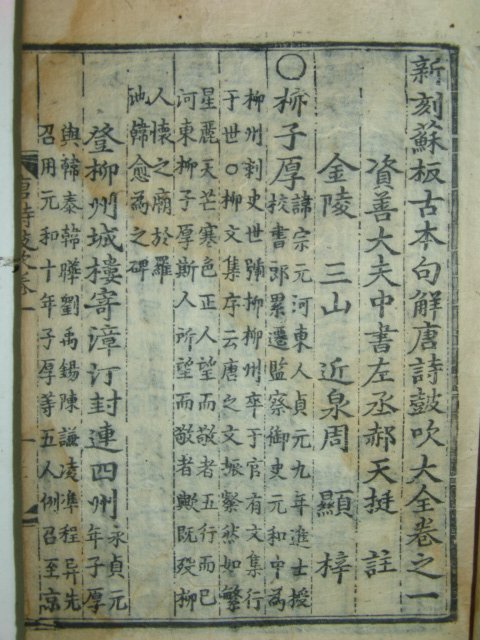 新刻蘇板古本句解唐詩鼓吹大全卷之一
資善大夫中書左丞郝天挺 註
金陵 三山 近泉周 顯 梓
○柳子厚 諱宗元河東人貞元九年進士授
校書郎累遷監察御史元和中為
柳州刺史世號柳柳州卒于官有文集行
于世○柳文集序云唐之文振繄然如繁
星麗天芒寒色正人望而敬者五行而已
河東柳子厚斯人所望而敬者歟既歿柳
人懷之廟於羅
池韓愈為之碑
登柳州城樓寄漳汀封連四州 永貞元
年子厚
與韓泰韓曄劉禹錫陳謙凌準程异先
召用元和十年子厚等五人例召至京
唐詩鼓吹卷一